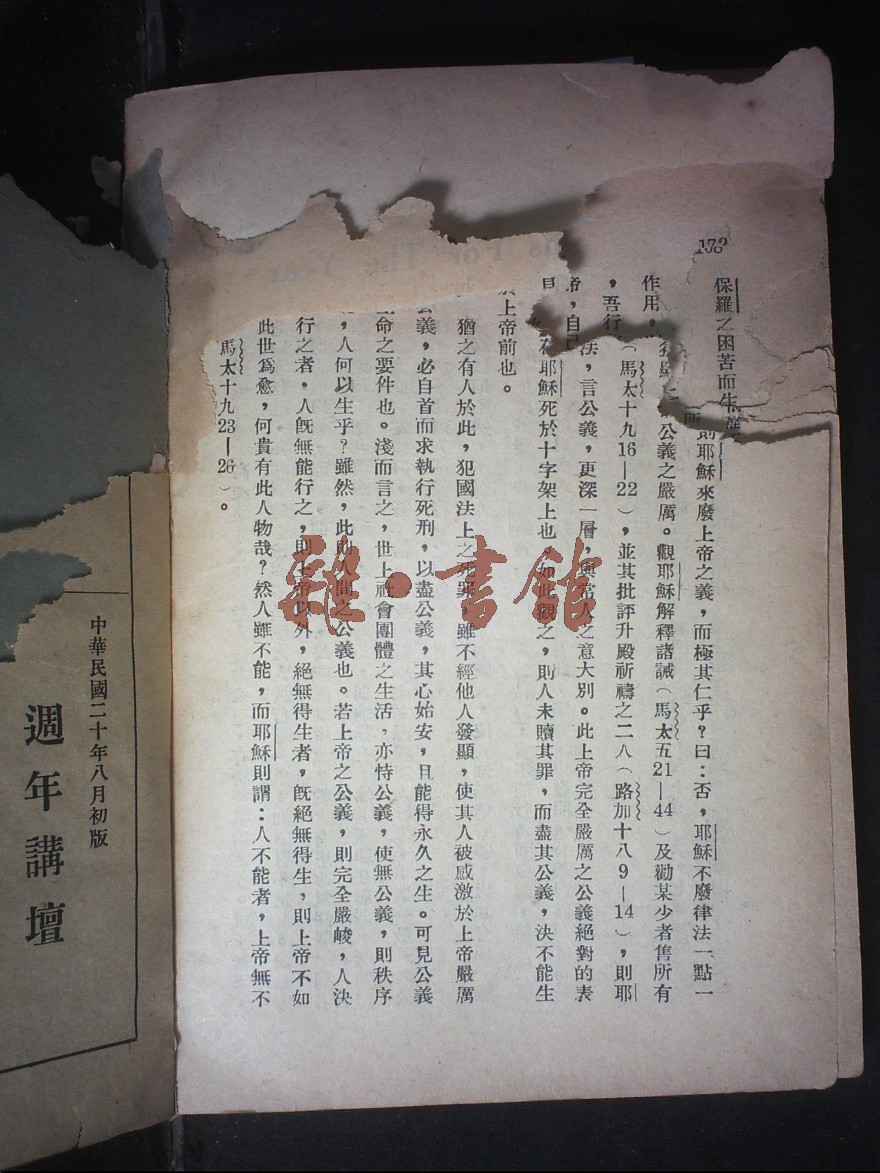 132
保羅之困苦而生
則耶穌來廢上帝之義，而極其仁乎？曰：否，耶穌不廢律法一點一
作用，
公義之嚴厲。觀耶穌解釋諸誡（馬太五21—44）及勸某少者售所有
，吾行
（馬太十九16—22），並其批評升殿祈禱之二人（路加十八9—14），則耶
帝，自己
法，言公義，更深一層，與當人之意大別。此上帝完全嚴厲之公義絕對的表
在耶穌死於十字架上也。如此觀之，則人未贖其罪，而盡其公義，決不能生
上帝前也。
猶之有人於此，犯國法上之死罪，雖不經他人發顯，使其人被感激於上帝嚴厲
公義，必自首而求執行死刑，以盡公義，其心始安，且能得永久之生。可見公義
命之要件也。淺而言之，世上社會團體之生活，亦恃公義，使無公義，則秩序
，人何以生乎？雖然，此則人間之公義也。若上帝之公義，則完全嚴峻，人決
行之者。人旣無能行之，則上帝以外，絕無得生者，旣絕無得生，則上帝不如
此世爲愈，何貴有此人物哉？然人雖不能，而耶穌則謂：人不能者，上帝無不
馬太十九23—26）。
中華民國二十年八月初版
週年講壇
雜·書館